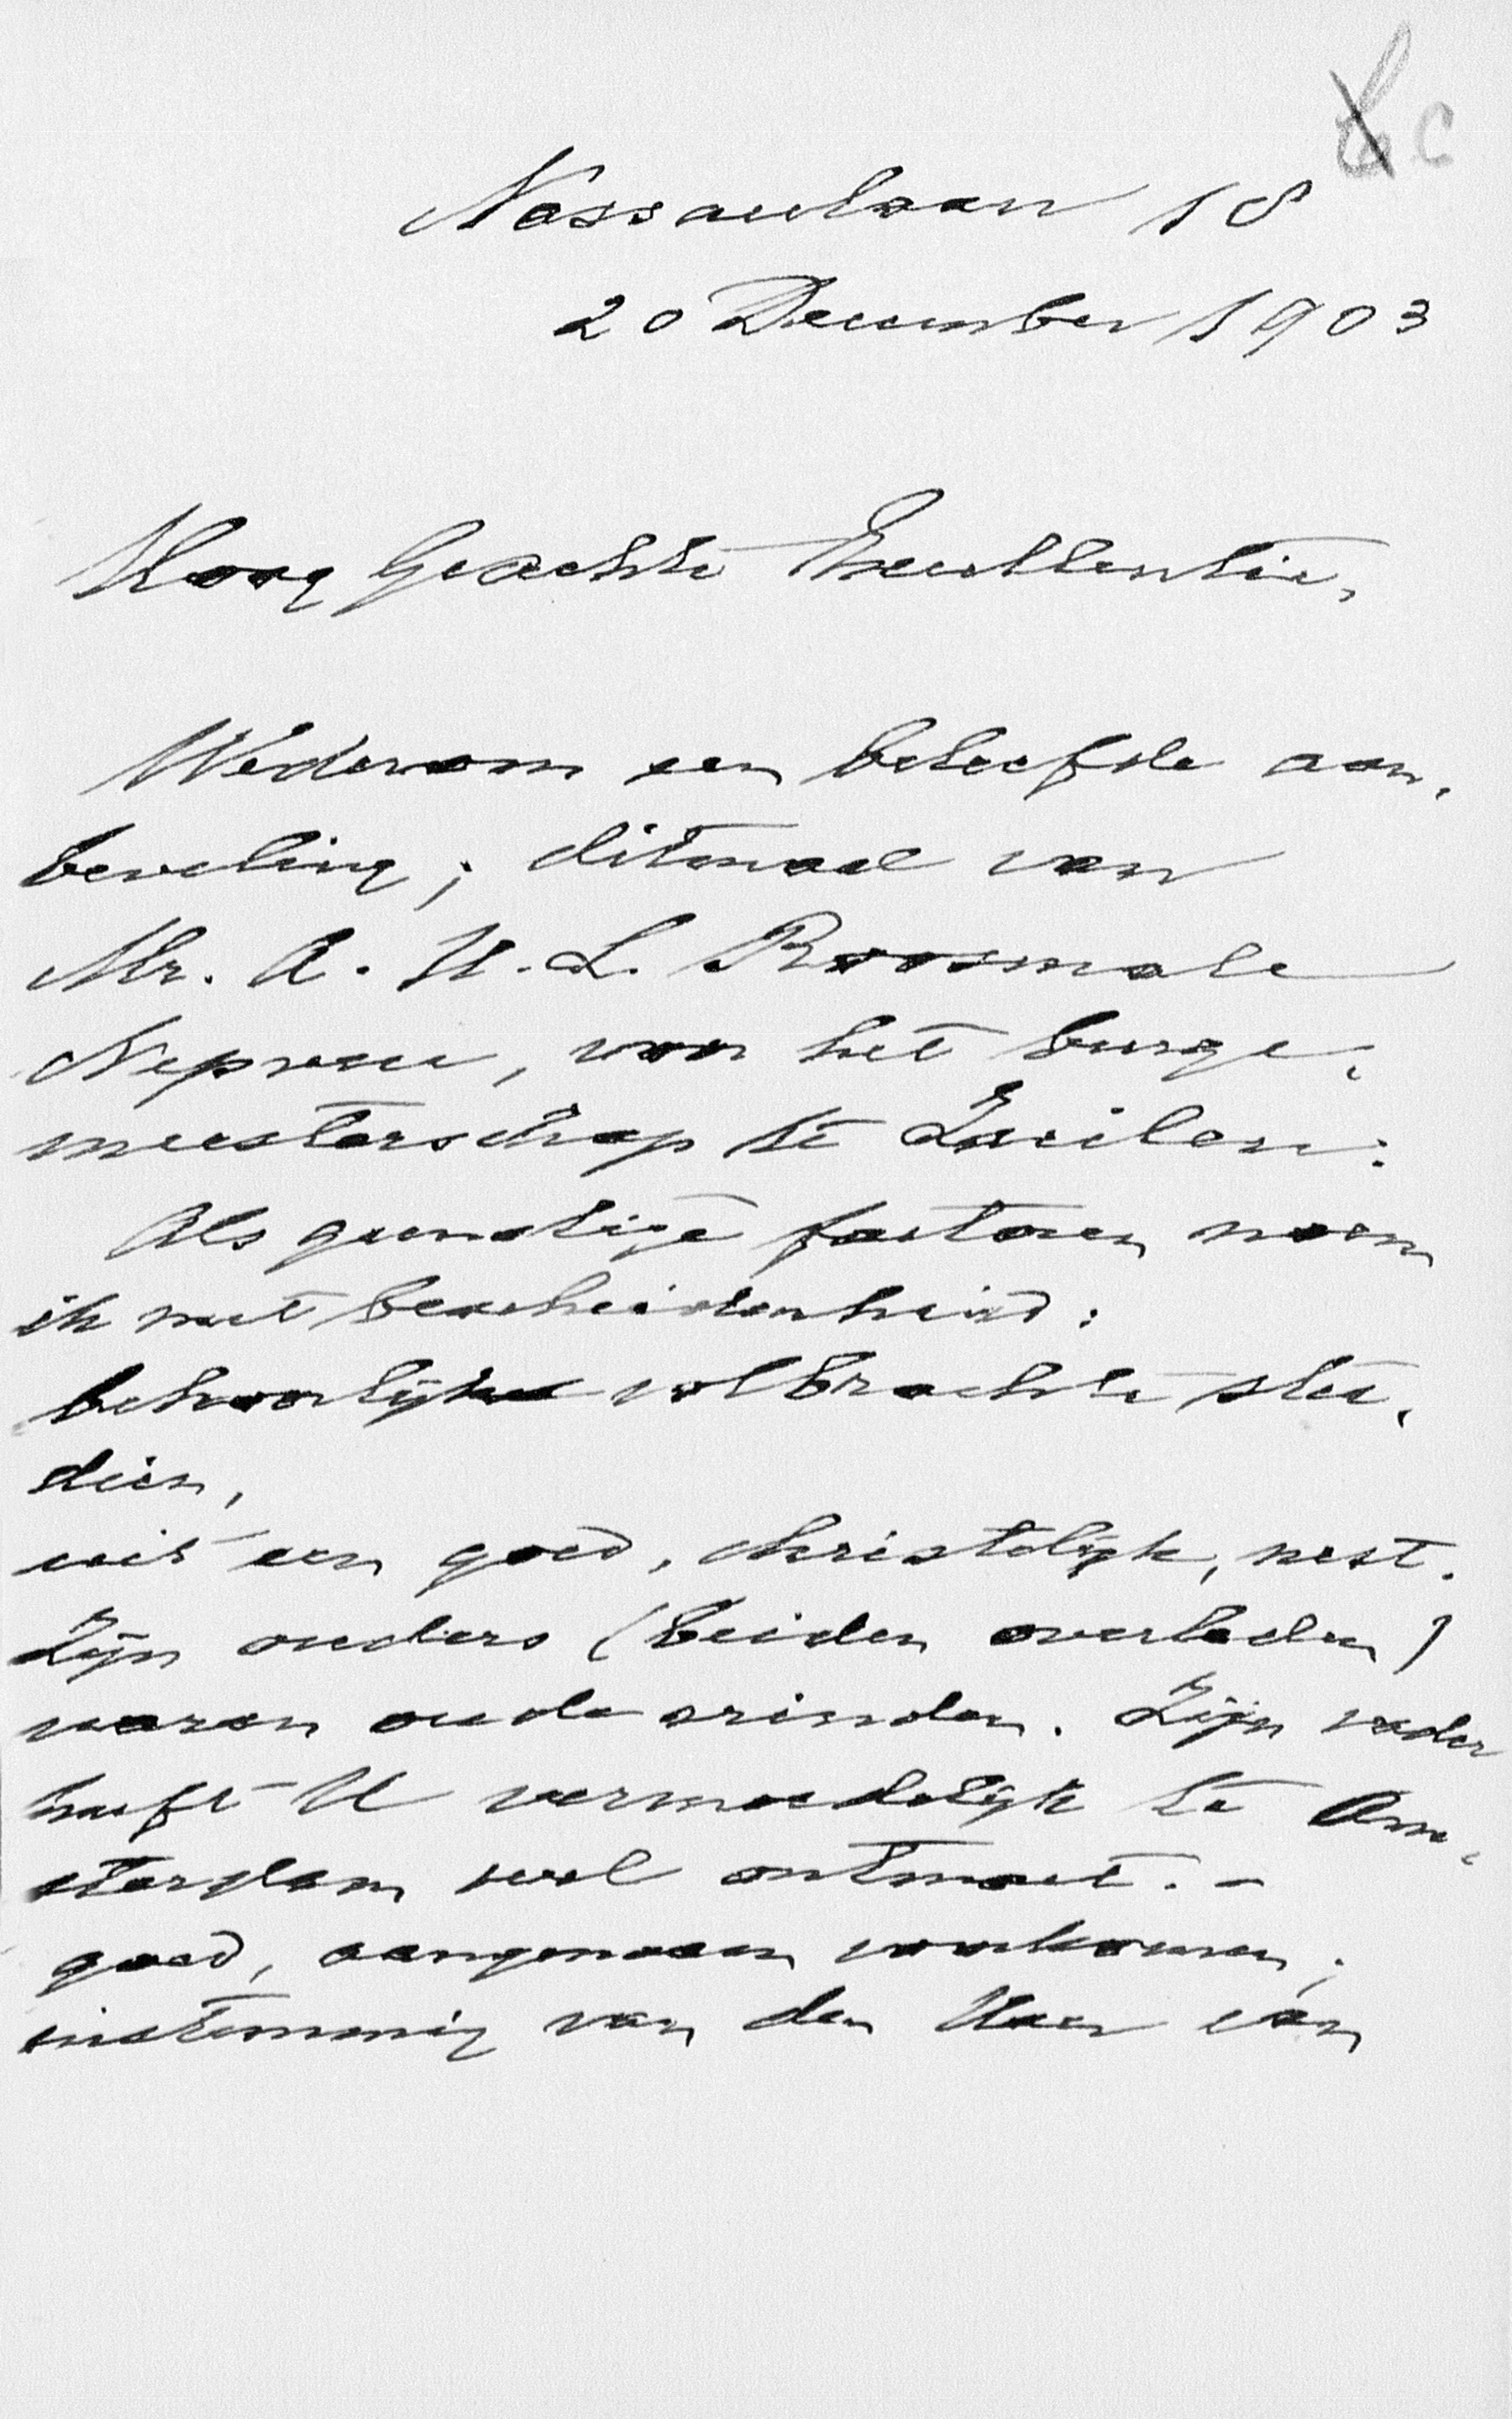 Nassaulaan 18
20 December 1903
Hoog Geachte Excellentie,
Wederom een beleefde aan,
beveling; ditmaal van
Mr. A. H. L. Roosmale
Nepveu, voor het burge,
meesterschap te Zuilen:
Als gunstige factoren noem
ik met bescheidenheid:
behoorlijk volbrachte stu,
dien,
uit een goed, christelijk, nest.
Zijn ouders (beiden overleden)
waren oude vrienden. Zijn vader
heeft U vermoedelijk te Am,
sterdam wel ontmoet. –
goed, aangenaam voorkomen;
instemming van den Heer van